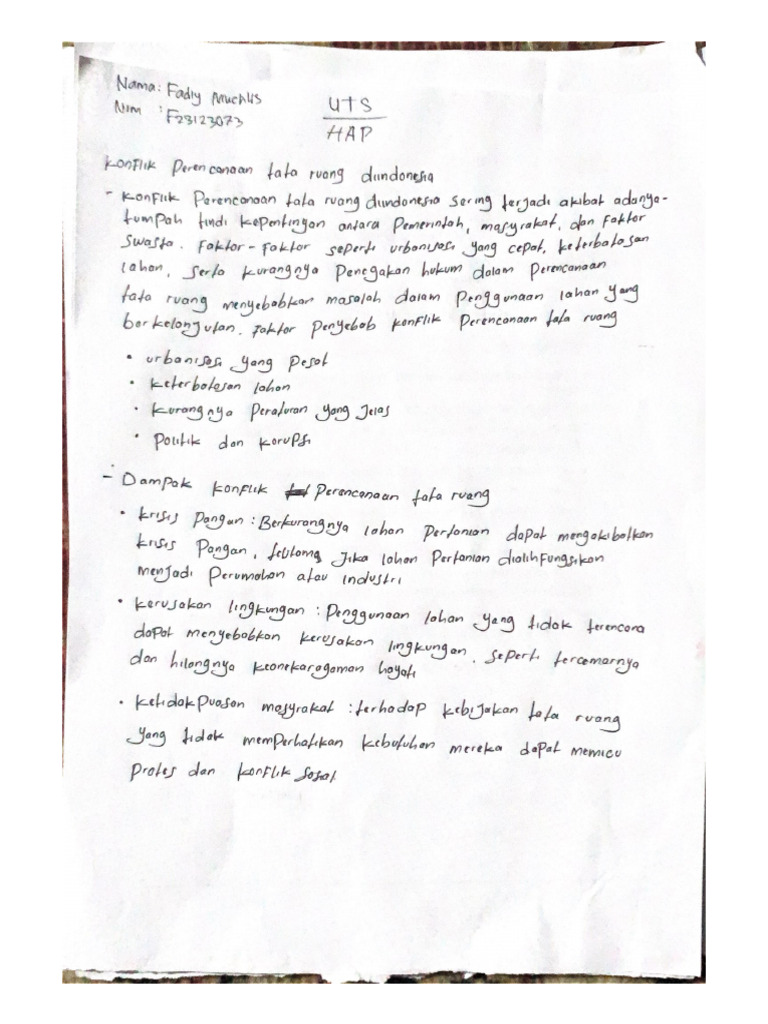 Nama: Fadly Muchlis
UTS
Nim : F23123073
HAP
Konflik Perencanaan tata ruang diindonesia
- Konflik Perencanaan tata ruang diindonesia sering terjadi akibat adanya-
tumpah tindi kepentingan antara Pemerintah, masyrakat, dan faktor
swasta. Faktor-Faktor seperti urbanisasi yang cepat, keterbatasan
lahan, serta kurangnya Penegakan hukum dalam Perencanaan
tata ruang menyebabkan masalah dalam Penggunaan lahan yang
berkelanjutan. Faktor Penyebab konflik Perencanaan tata ruang
• urbanisasi yang Pesat
• keterbatasan lahan
• kurangnya Peraturan yang Jelas
• Politik dan korupsi
- Dampak konflik Perencanaan tata ruang
• krisis Pangan : Berkurangnya lahan Pertanian dapat mengakibatkan
krisis Pangan, Jika lahan Pertanian dialihfungsikan
menjadi Perumahan atau industri
• kerusakan lingkungan : Penggunaan lahan yang tidak terencana
dapat menyebabkan kerusakan lingkungan. seperti tercemarnya
dan hilangnya keanekaragaman hayati
• ketidakPuasan masyrakat : terhadap kebijakan tata ruang
yang tidak memperhatikan kebutuhan mereka dapat memicu
Protes dan konflik sosial